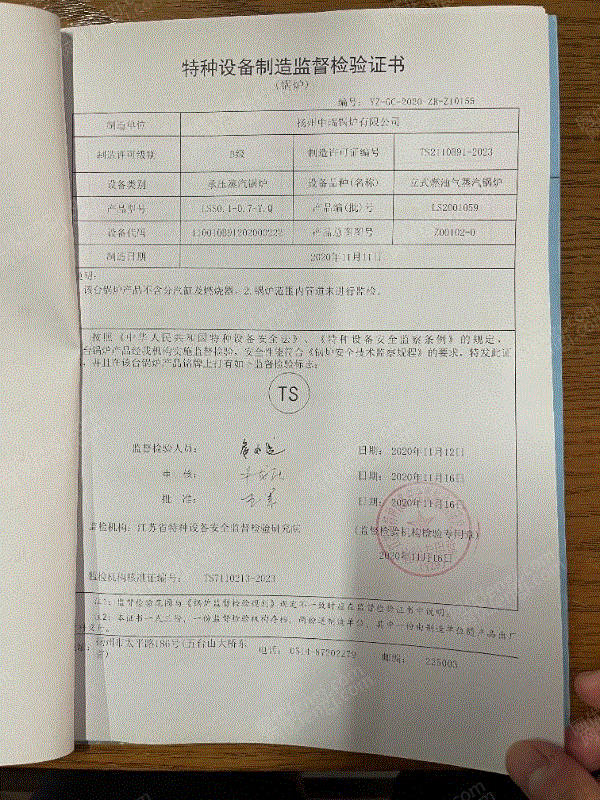 特种设备制造监督检验证书
(锅炉)
编号: YZ-GC-2020-ZR-Z10155
制造单位 扬州中瑞锅炉有限公司
制造许可级别 D级 制造许可证编号 TS2110B91-2023
设备类别 承压蒸汽锅炉 设备品种(名称) 立式燃油气蒸汽锅炉
产品型号 LSS0.1-0.7-Y.Q 产品编(批)号 LS2001059
设备代码 110010B91202002222 产品总图图号 Z00102-0
制造日期 2020年11月11日
说明:
该台锅炉产品不含分汽缸及燃烧器。2.锅炉范围内管道未进行监检。
按照《中华人民共和国特种设备安全法》、《特种设备安全监察条例》的规定,
台锅炉产品经我机构实施监督检验,安全性能符合《锅炉安全技术监察规程》的要求,特发此证
,并且在该台锅炉产品铭牌上打有如下监督检验标志:
TS
监督检验人员: 日期: 2020年11月12日
审 核: 日期: 2020年11月16日
批 准: 日期: 2020年11月16日
监检机构: 江苏省特种设备安全监督检验研究院 (监督检验机构检验专用章)
2020年11月16日
监检机构核准证编号: TS7110213-2023
注1: 监督检验范围与《锅炉监督检验规则》规定不一致时应在监督检验证书中说明。
注2: 本证书一式三份,一份监督检验机构存档,两份送制造单位,其中一份由制造单位随产品出厂
扬州市太平路186号(五台山大桥东 电话: 0514-87202279 邮编: 225003